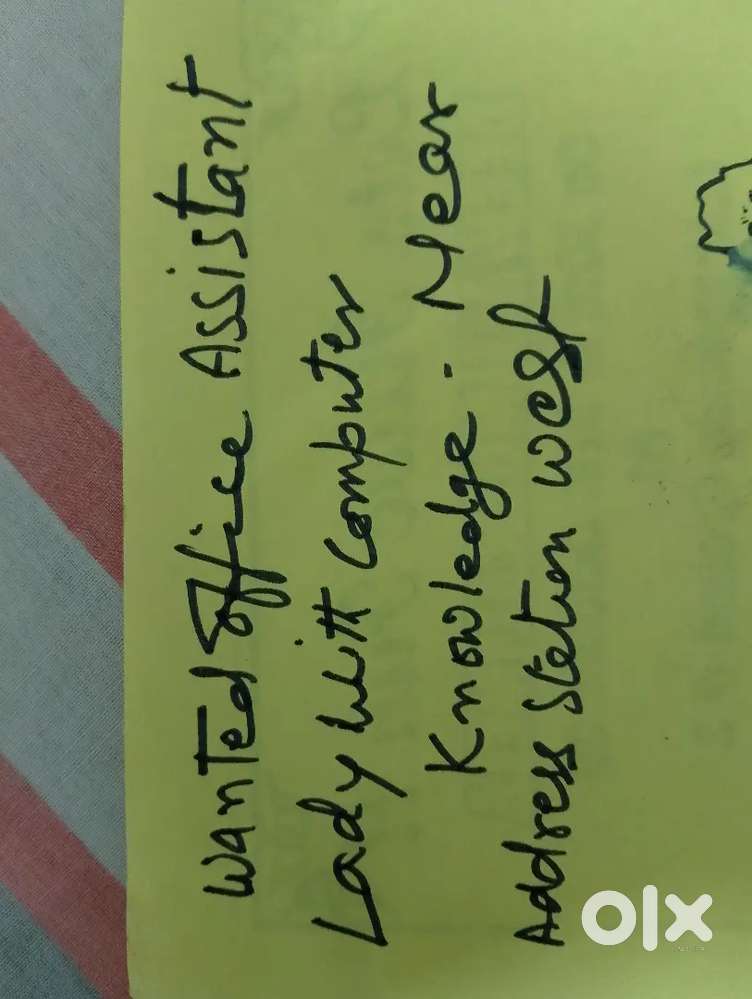 Wanted Office Assistant
Lady With Computer
Knowledge. Near
Address Station West
olx